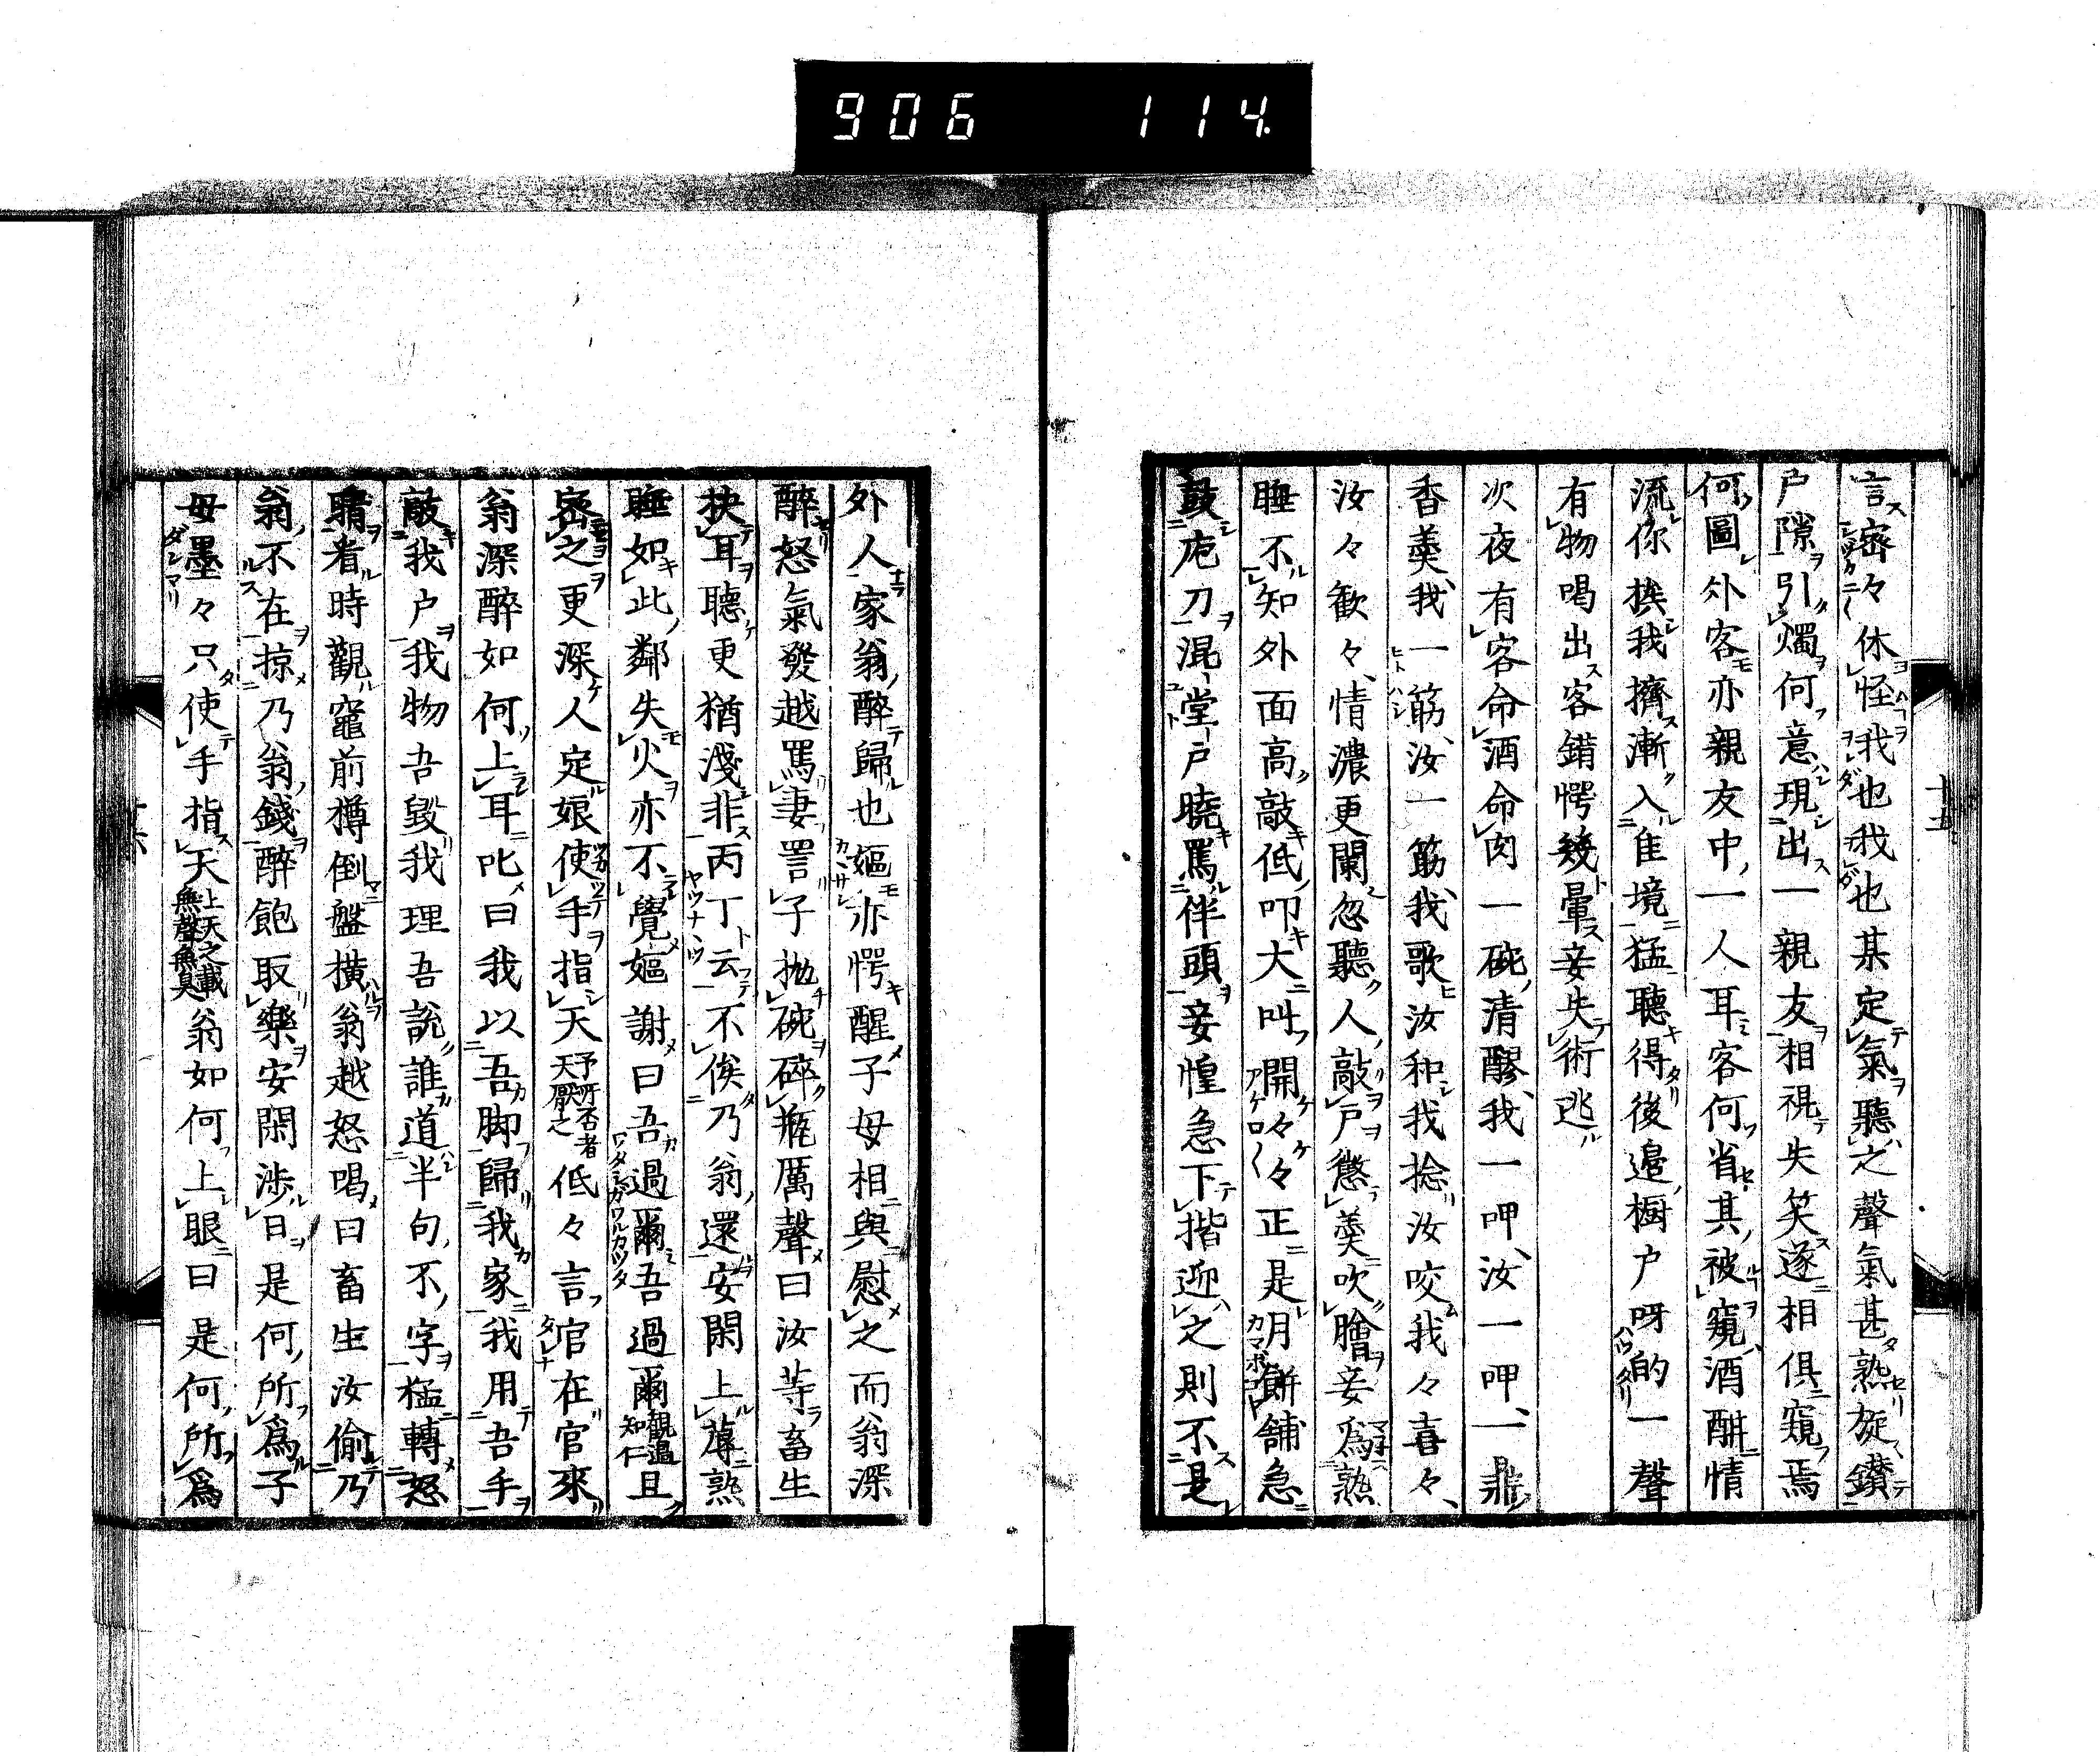 906 114.
言密々休怪我也我也某定氣聽之聲氣甚熟旋鑚
戸隙引燭何意現出一親友相視失笑遂相俱窺焉
何圖外客亦親友中一人耳客何省其被窺酒酣情
流你挨我擠漸入佳境猛聽得後邉橱戸呀的一聲
有物喝出客錯愕幾暈妾失術逃
次夜有客命酒命肉一碗清醪我一呷汝一呷一鼎
香羮我一筯汝一筯我歌汝和我捻汝咬我々喜々
汝々歡々情濃更闌忽聽人敲戸懲羮吹膾妾為熟
睡不知外面高敲低叩大叫開々々正是月餅舗急
鼓庖刀混堂戸曉罵伴頭妾惶急下揩迎之則不是
十五
外人家翁醉歸也嫗亦愕醒子母相與慰之而翁深
醉怒氣發越罵妻詈子抛碗碎瓶厲聲曰汝等畜生
抉耳聽更猶淺非丙丁云不俟乃翁還安閑上蓐熟
睡如此鄰失火亦不覺嫗謝曰吾過爾吾過爾觀過知仁且
密之更深人定娘使手指天予所否者天厭之低々言官在官來
翁深醉如何上耳叱曰我以吾脚歸我家我用吾手
敲我戸我物吾毀我理吾説誰道半句不字猛轉怒
睛看時觀竈前樽倒盤横翁越怒喝曰畜生汝偷乃
翁不在掠乃翁錢醉飽取樂安閑渉日是何所爲子
母墨々只使手指天上天之載無聲無臭翁如何上眼曰是何所爲